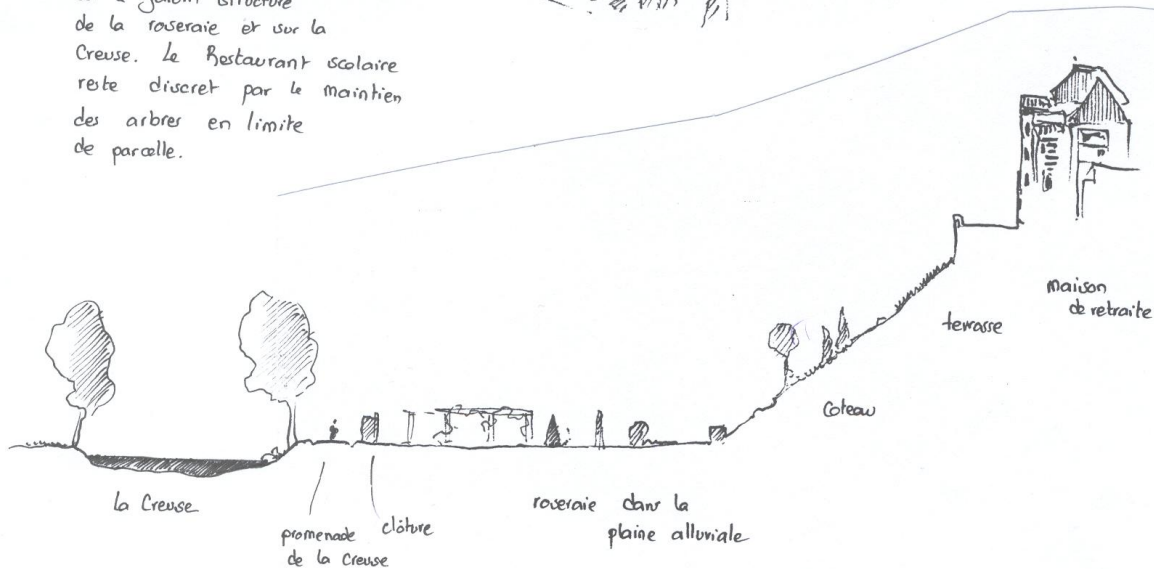 jardin structuré
de la roseraie et sur la
Creuse. Le Restaurant scolaire
reste discret par le maintien
des arbres en limite
de parcelle.
maison
de retraite
terrasse
Coteau
la Creuse
promenade
de la Creuse
clôture
roseraie dans la
plaine alluviale